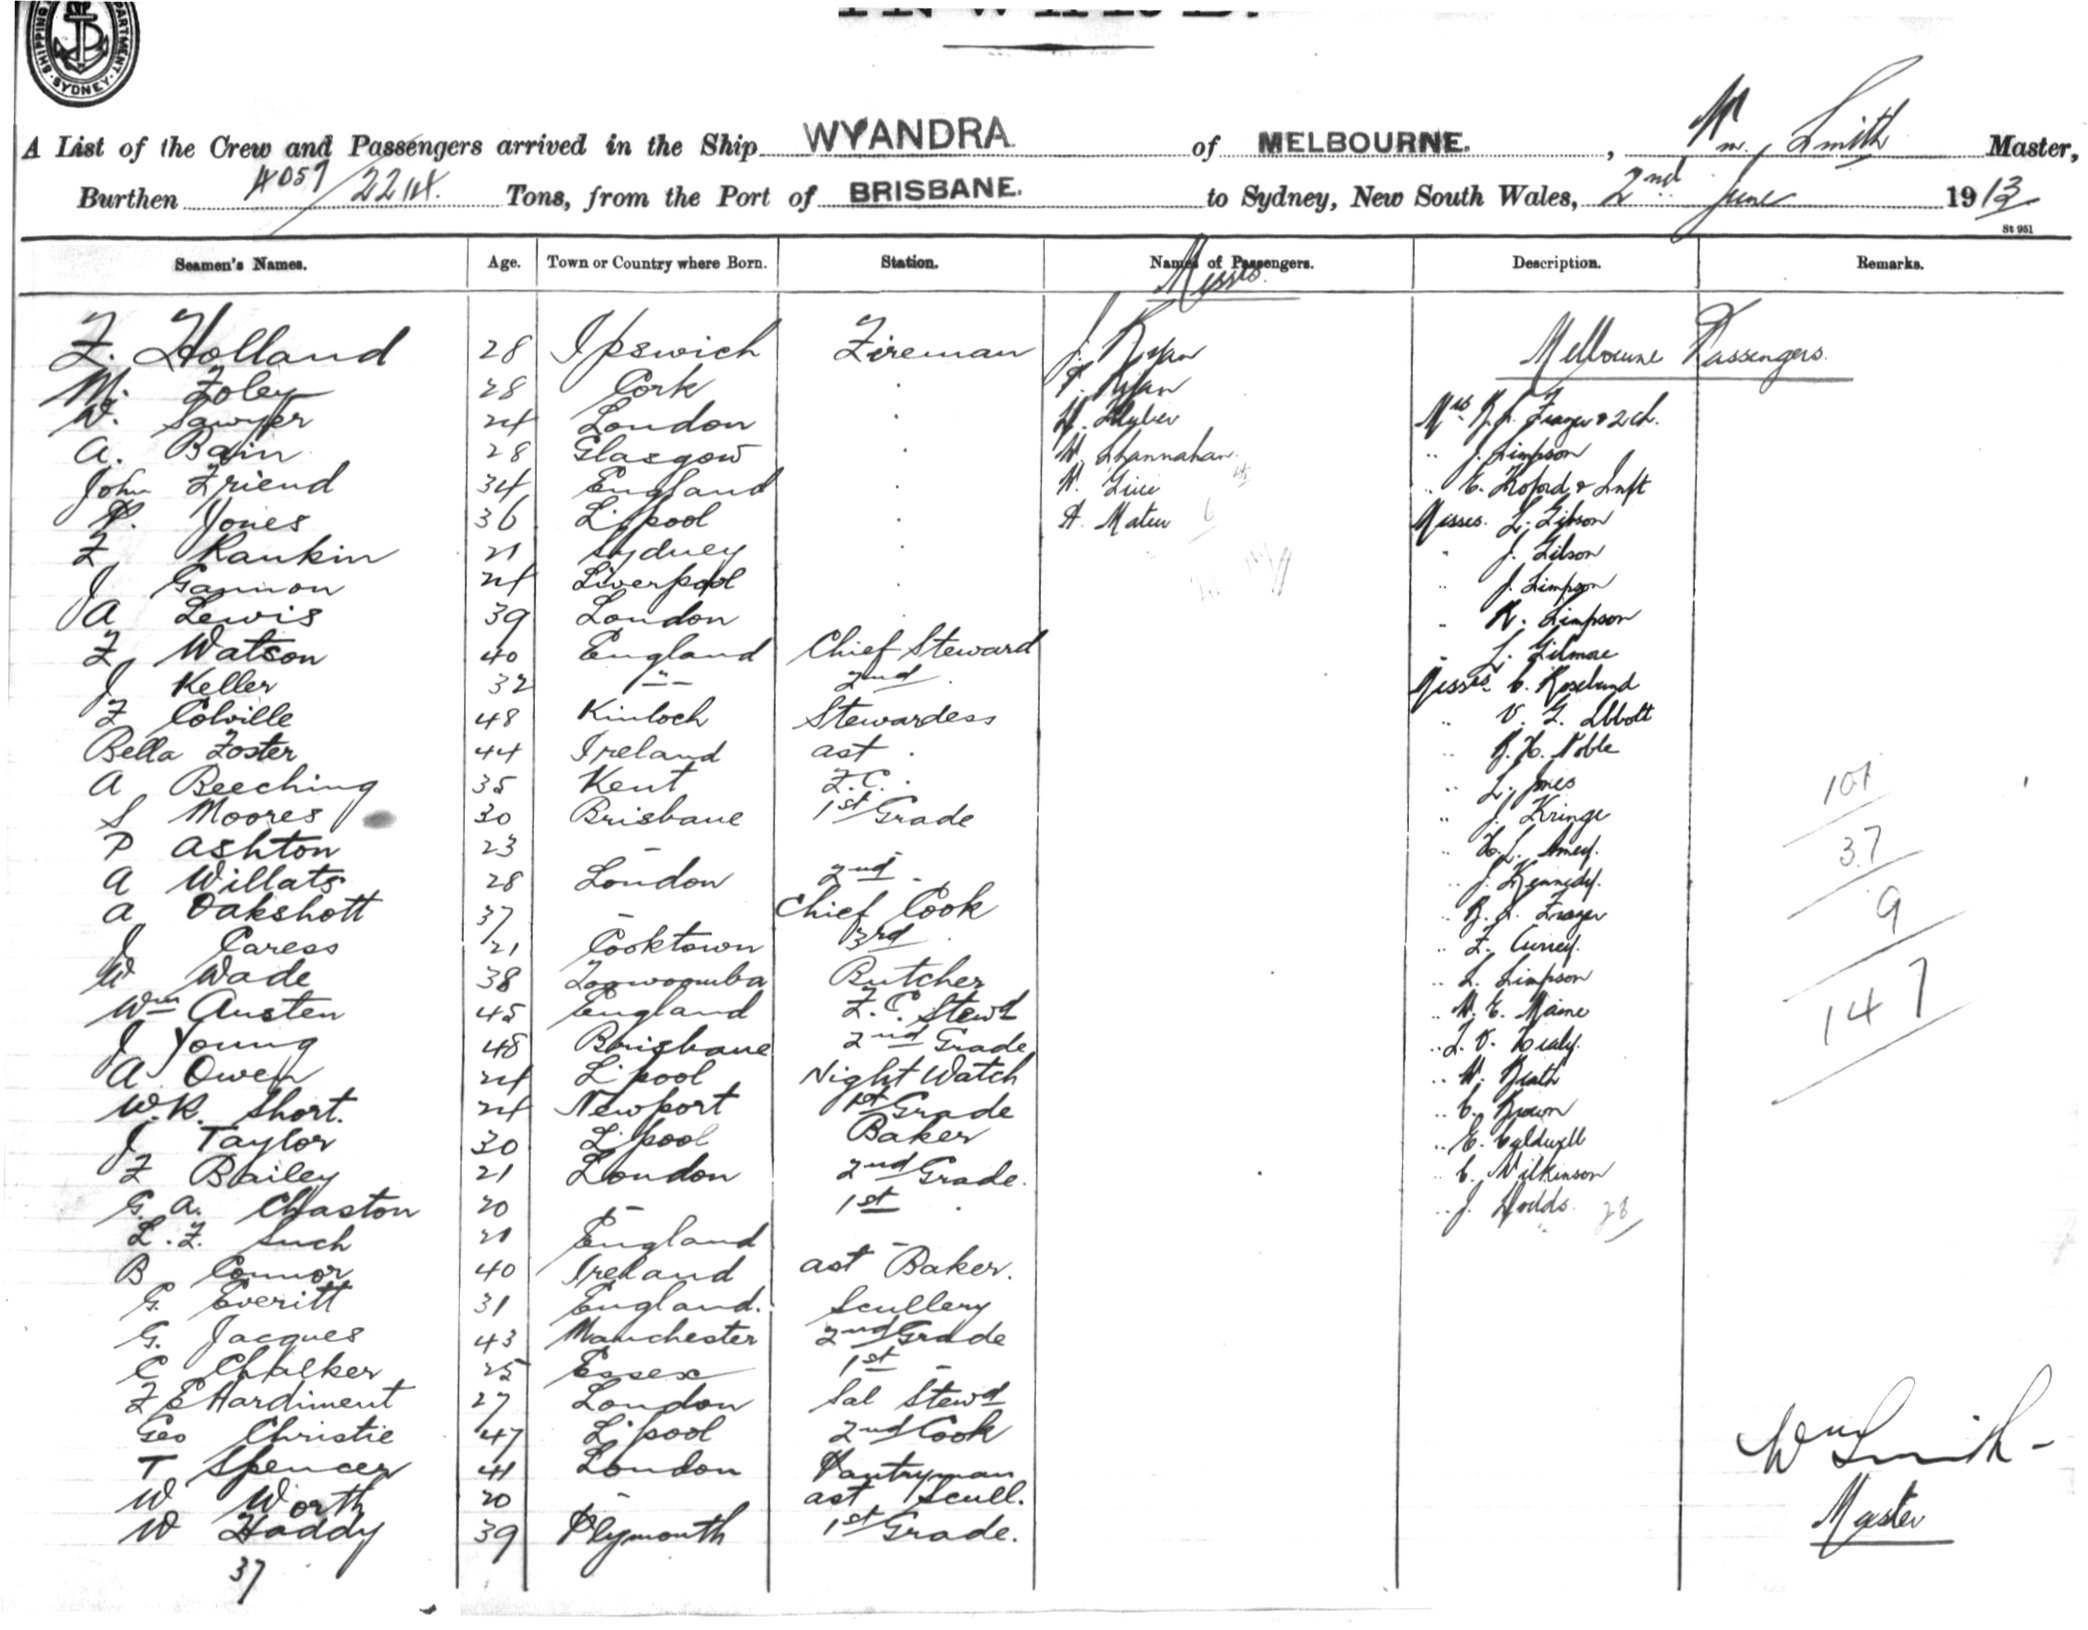 SHIPPING DEPARTMENT SYDNEY
INWARD.
A List of the Crew and Passengers arrived in the Ship WYANDRA of MELBOURNE. , Wm. Smith Master,
Burthen 4057/2214. Tons, from the Port of BRISBANE. to Sydney, New South Wales, 2nd June 1913
St 951
Seamen's Names. Age. Town or Country where Born. Station. Names of Passengers. Description. Remarks.
Messrs.
F. Holland 28 Ipswich Fireman J. Ryan Melbourne Passengers.
M. Foley 28 Cork . P. Ryan
W. Sawyer 24 London . Mrs R. L. Frazer & 2 ch.
A. Bain 28 Glasgow . W. Shannahan .. J. Simpson
John Friend 34 England . W. .. & Inft
P. Jones 36 L'pool . A. 6 Misses. L. Gibson
F Rankin 21 Sydney . " J. Gibson
J Gannon 24 Liverpool . .. J. Simpson
A Lewis 39 London . .. K. Simpson
F Watson 40 England Chief Steward " L. Gilmore
J Keller 32 -"- 2nd . Messrs. C. Roselund
F Colville 48 Kinloch Stewardess .. V. G. Abbott
Bella Foster 44 Ireland ast . .. R. H. Noble
A Beeching 35 Kent F.C. . .. L. Jones
S Moores 30 Brisbane 1st Grade .. J. Kringe
P Ashton 23 - - .. H. L. Amey.
A Willats 28 London 2nd . .. J. Kennedy.
A Oakshott 37 - Chief Cook .. R. L. Frazer
J Caress 21 Cooktown 3rd . .. F. Currey.
W Wade 38 Toowoomba Butcher .. L. Simpson
Wm Austen 45 England F.C. Stewd .. W. E. Maine
J Young 48 Brisbane 2nd Grade .. T. V. Healy.
A Owen 24 L'pool Night Watch .. W. Heath
W.R. Short. 24 Newport 1st Grade .. C. Brown
J Taylor 30 L'pool Baker .. E. Caldwell
F Bailey 21 London 2nd Grade. .. C. Wilkinson
G. A. Chaston 20 - 1st . .. J. Dodds. 28
L. F. Such 21 England -
B Connor 40 Ireland ast Baker.
G. Everitt 31 England. Scullery
G. Jacques 43 Manchester 2nd Grade
C Chalker 25 Essex 1st -
F E Hardiment 27 London Sal Stewd
Geo Christie 47 L'pool 2nd Cook
T Spencer 41 London Pantryman
W Worth 20 - ast Scull.
W Haddy 39 Plymouth 1st Grade.
37
101
37
9
147
Wm Smith -
Master